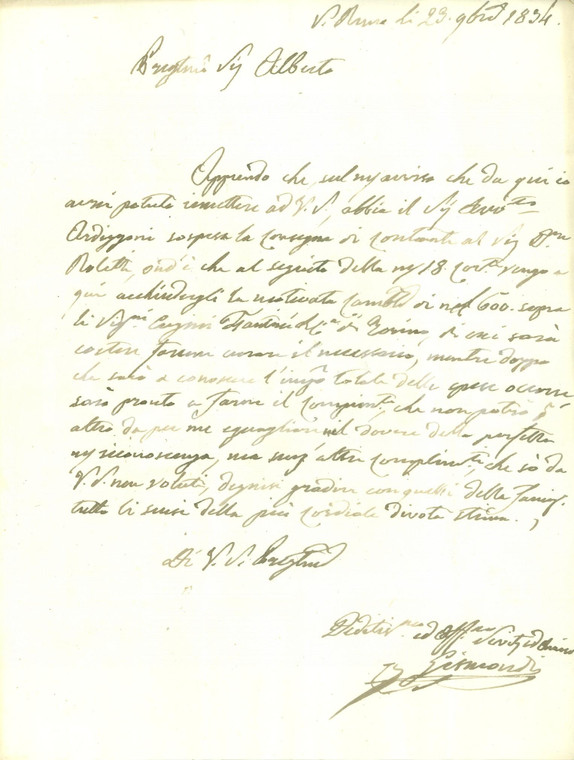 S. Remo li 23. 9bre 1834.
Preg.mo Sig Alberto
Apprendo che, sul mio avviso che da qui io
avrei potuto rimettere ad V. S., abbia il Sig
Ardizzoni sospesa la consegna di contante al Sig D.n
Roletti, ond'è che al seguito della mia 18 Corr.e vengo a
qui acchiudergli la motivata Cambl di 600. sopra
li Sig.ri Cugini di Torino, di cui sarà
farsene curare il necessario, mentre doppo
che sarò a conoscere l'imp.o totale delle spese occorse
sarò pronto a farne il che non potrò p
altro da per me eguagliare il dovere della perfetta
mia riconoscenza, ma senz'altri complimenti, che sò da
V. S. non voluti, degnisi gradire con quelli della Famig.
tutta li sensi della più cordiale divota stima.
Di V. S. Preg.ma
Devotis.mo ed Aff.mo Servit. ed Amico
Gismondi